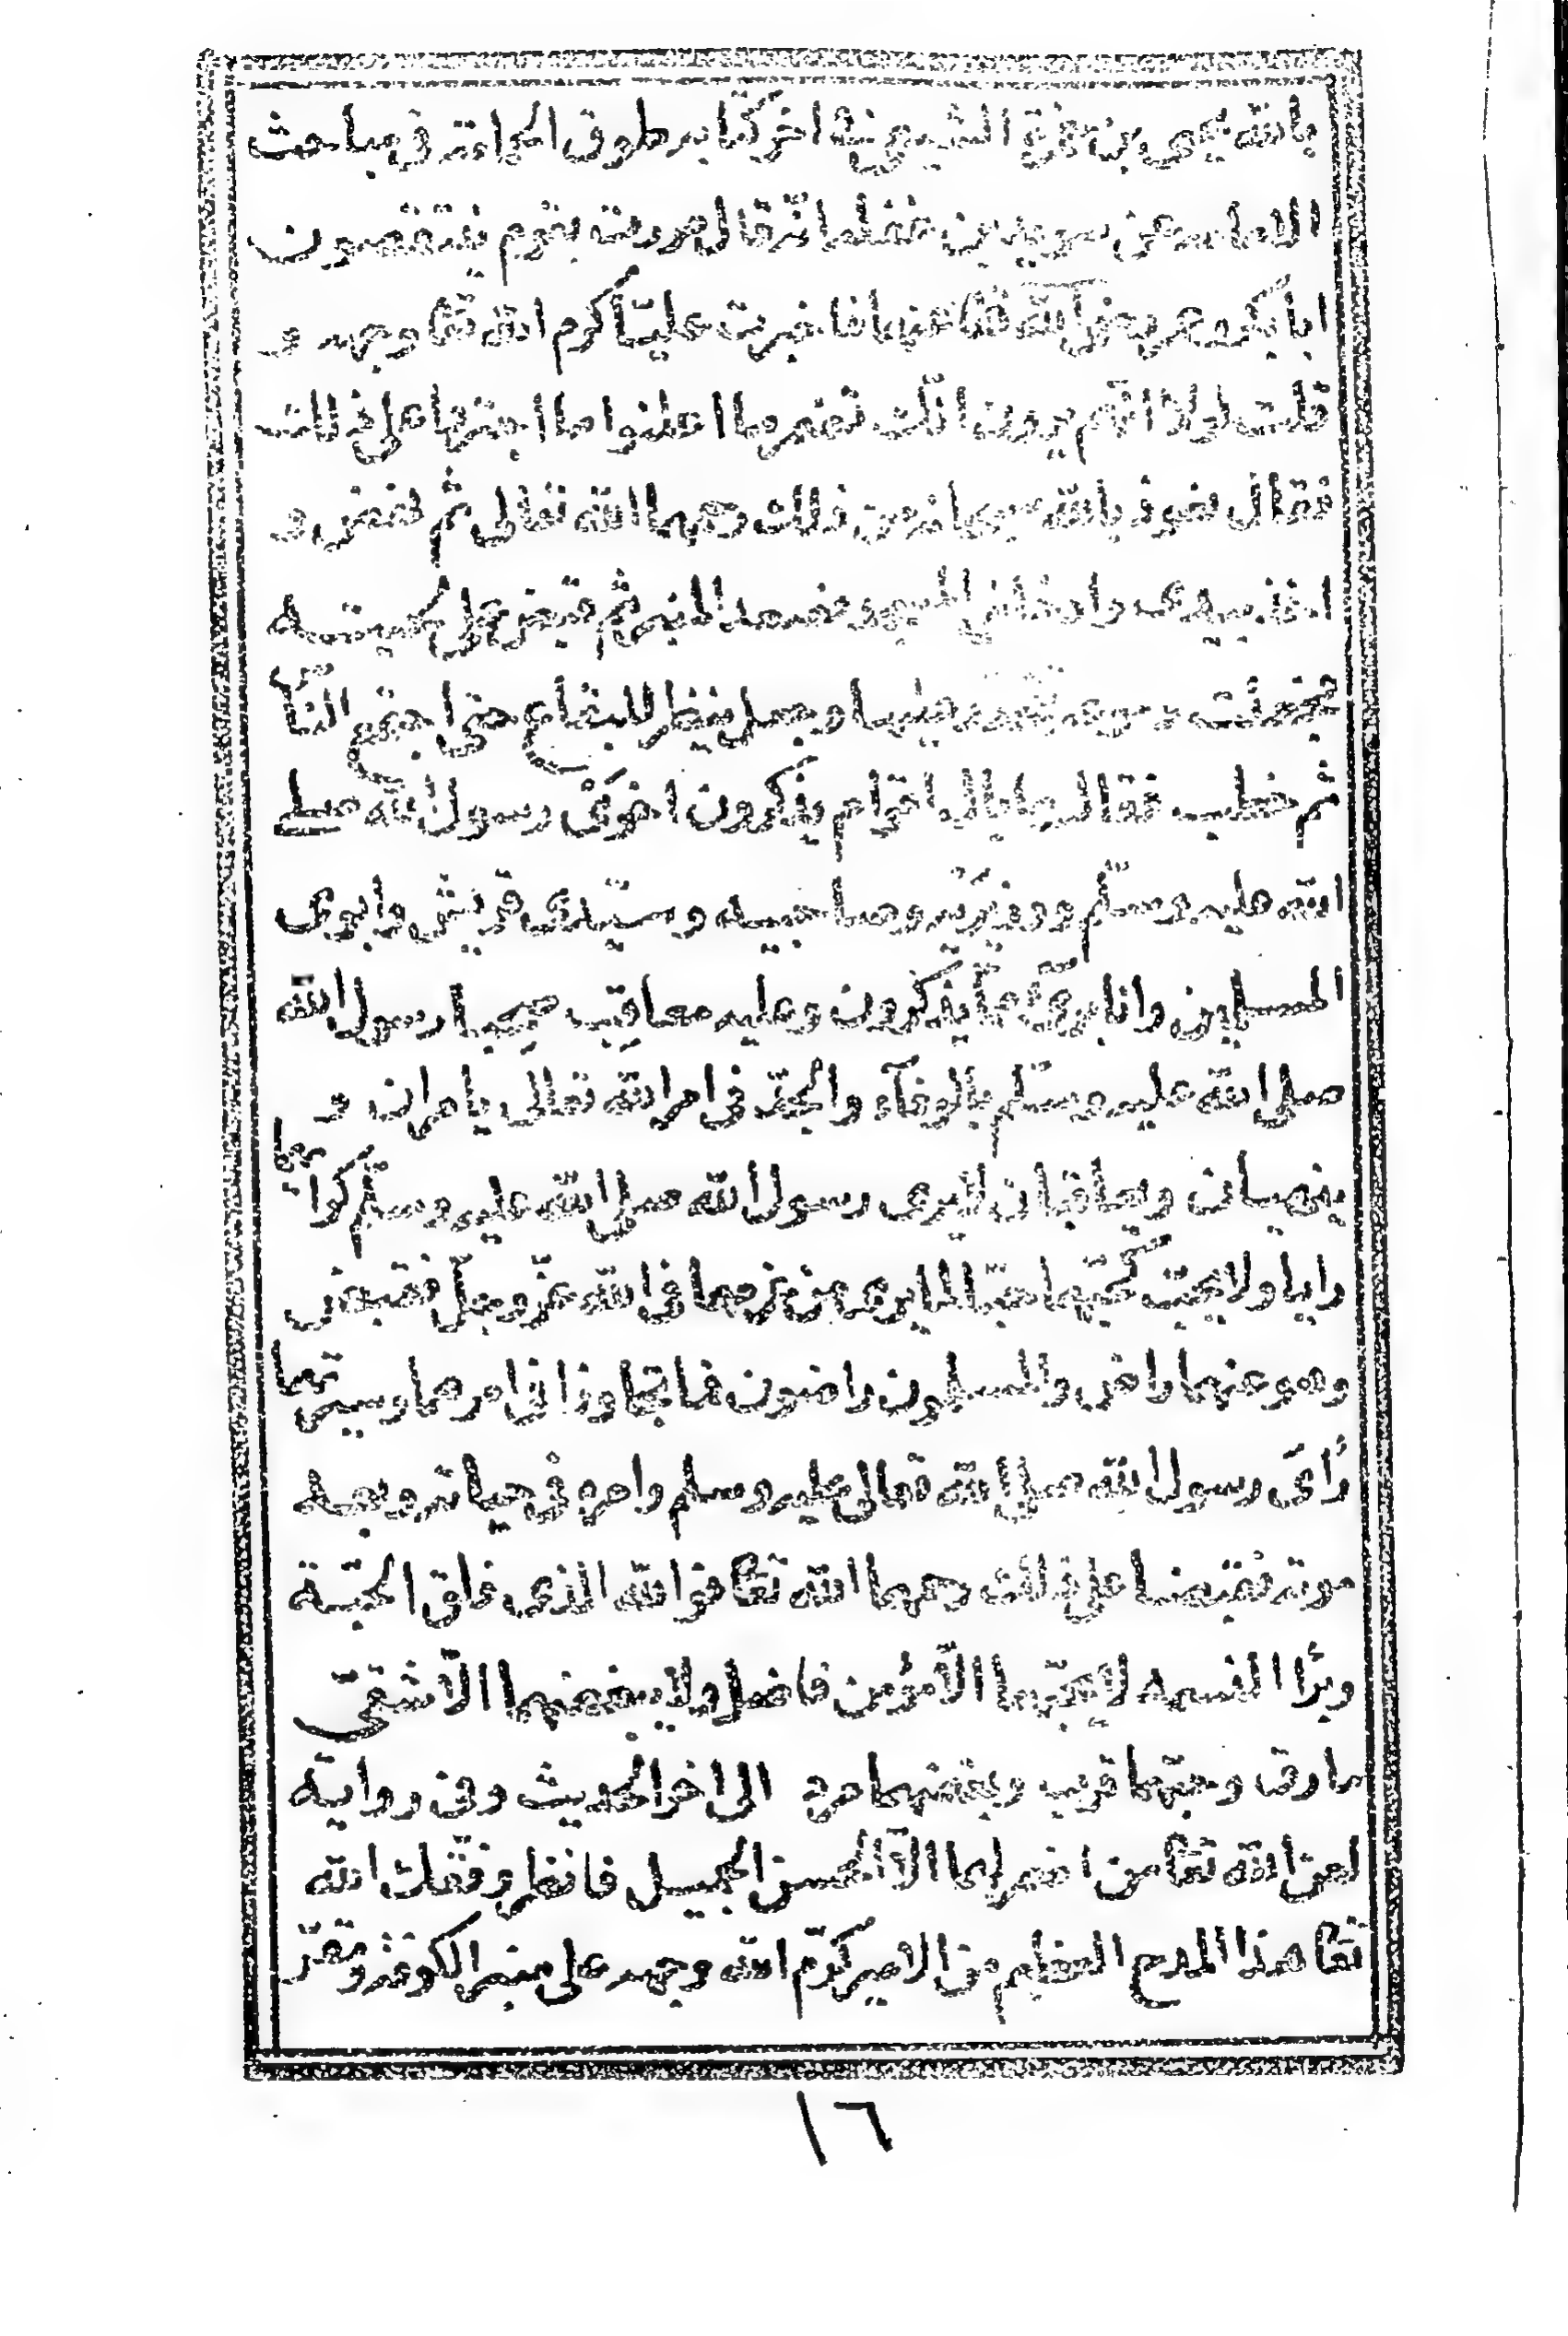 بالله يحيى بن حمزة الشيعى فى اخر كتابه طوق الحمامة فى مباحث
الامامه عن سويد بن غفله انه قال مررت بقوم ينتقصون
ابا بكر وعمر رضى الله تعا عنهما فاخبرت عليّا كرم الله تعا وجهه و
قلت لولا انهم يرون انّك تضمر ما اعلنوا ما اجترؤا على ذلك
فقال نعوذ بالله سبحانه من ذلك رحمهما الله تعالى ثم نهض و
اخذ بيدى وادخلنى المسجد فصعد المنبر ثم قبض على لحيته
فجعلت دموعه تتحدر عليها وجعل ينظر للبقاع حتى اجتمع النّاس
ثم خطب فقال ما بال اقوام يذكرون اخوى رسول الله صلى
الله عليه وسلّم ووزيريه وصاحبيه وسيّدى قريش وابوى
المسلمين وانا برىء ممّا يذكرون وعليه معاقب صحبا رسول الله
صلى الله عليه وسلّم بالوفاء والجدّ فى امر الله تعالى يامران و
ينهيان ويعاقبان لايرى رسول الله صلى الله عليه وسلّم كرأيهما
رايا ولا يحبّ كحبّهما حبّا لما يرى من عزمهما فى الله عزّ وجلّ فقبض
وهو عنهما راض والمسلمون راضون فما تجاوزا فى امرهما وسيرتهما
رأى رسول الله صلى الله تعالى عليه وسلم وامره فى حياته وبعد
موته فقبضا على ذلك رحمهما الله تعا فوالله الذى فلق الحبّة
وبرأ النسمه لا يحبّهما الّا مؤمن فاضل ولا يبغضهما الّا شقىّ
مارق وحبّهما قربه وبغضهما مرق الى اخر الحديث وفى رواية
لعن الله تعا من اضمر لهما الّا الحسن الجميل فانظر وفّقك الله
تعا هذا المدح العظيم من الامير كرّم الله وجهه على منبر الكوفة
١٦